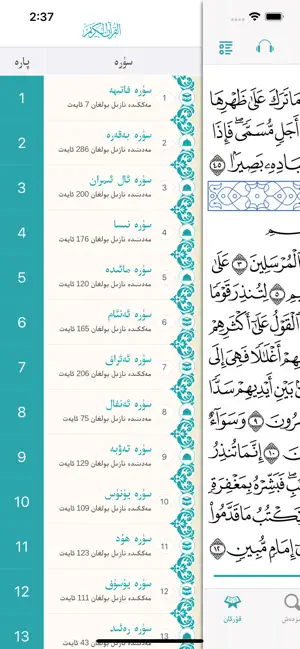 2:37
القرآن الكريم
سۈرە
پارە
سۈرە فاتىھە
مەككىدە نازىل بولغان 7 ئايەت
1
1
سۈرە بەقەرە
مەدىنىدە نازىل بولغان 286 ئايەت
2
2
سۈرە ئال ئىمران
مەدىنىدە نازىل بولغان 200 ئايەت
3
3
سۈرە نىسا
مەدىنىدە نازىل بولغان 176 ئايەت
4
4
سۈرە مائىدە
مەدىنىدە نازىل بولغان 120 ئايەت
5
5
سۈرە ئەنئام
مەككىدە نازىل بولغان 165 ئايەت
6
6
سۈرە ئەئراف
مەككىدە نازىل بولغان 206 ئايەت
7
7
سۈرە ئەنفال
مەدىنىدە نازىل بولغان 75 ئايەت
8
8
سۈرە تەۋبە
مەدىنىدە نازىل بولغان 129 ئايەت
9
9
سۈرە يۇنۇس
مەككىدە نازىل بولغان 109 ئايەت
10
10
سۈرە ھۇد
مەككىدە نازىل بولغان 123 ئايەت
11
11
سۈرە يۈسۈف
مەككىدە نازىل بولغان 111 ئايەت
12
12
سۈرە رەئىد
مەدىنىدە نازىل بولغان 43 ئايەت
13
13
مَا تَرَكَ عَلَىٰ ظَهْرِهَا
أَجَلٍ مُّسَمًّى ۖ فَإِذَا
بَادِهِۦ بَصِيرًا ٤٥
الْمُرْسَلِينَ ٣ عَلَىٰ
٥ لِتُنذِرَ قَوْمًا
الْقَوْلُ عَلَىٰ أَكْثَرِهِمْ
هِمْ أَغْلَالًا فَهِيَ إِلَى
بَيْنِ أَيْدِيهِمْ سَدًّا
رُونَ ٩ وَسَوَآءٌ
نَ ١٠ إِنَّمَا تُنذِرُ
بِ ۖ فَبَشِّرْهُ بِمَغْفِرَةٍ
نَكْتُبُ مَا قَدَّمُوا
إِمَامٍ مُّبِينٍ ١٢
قۇرئان
ىزدەش